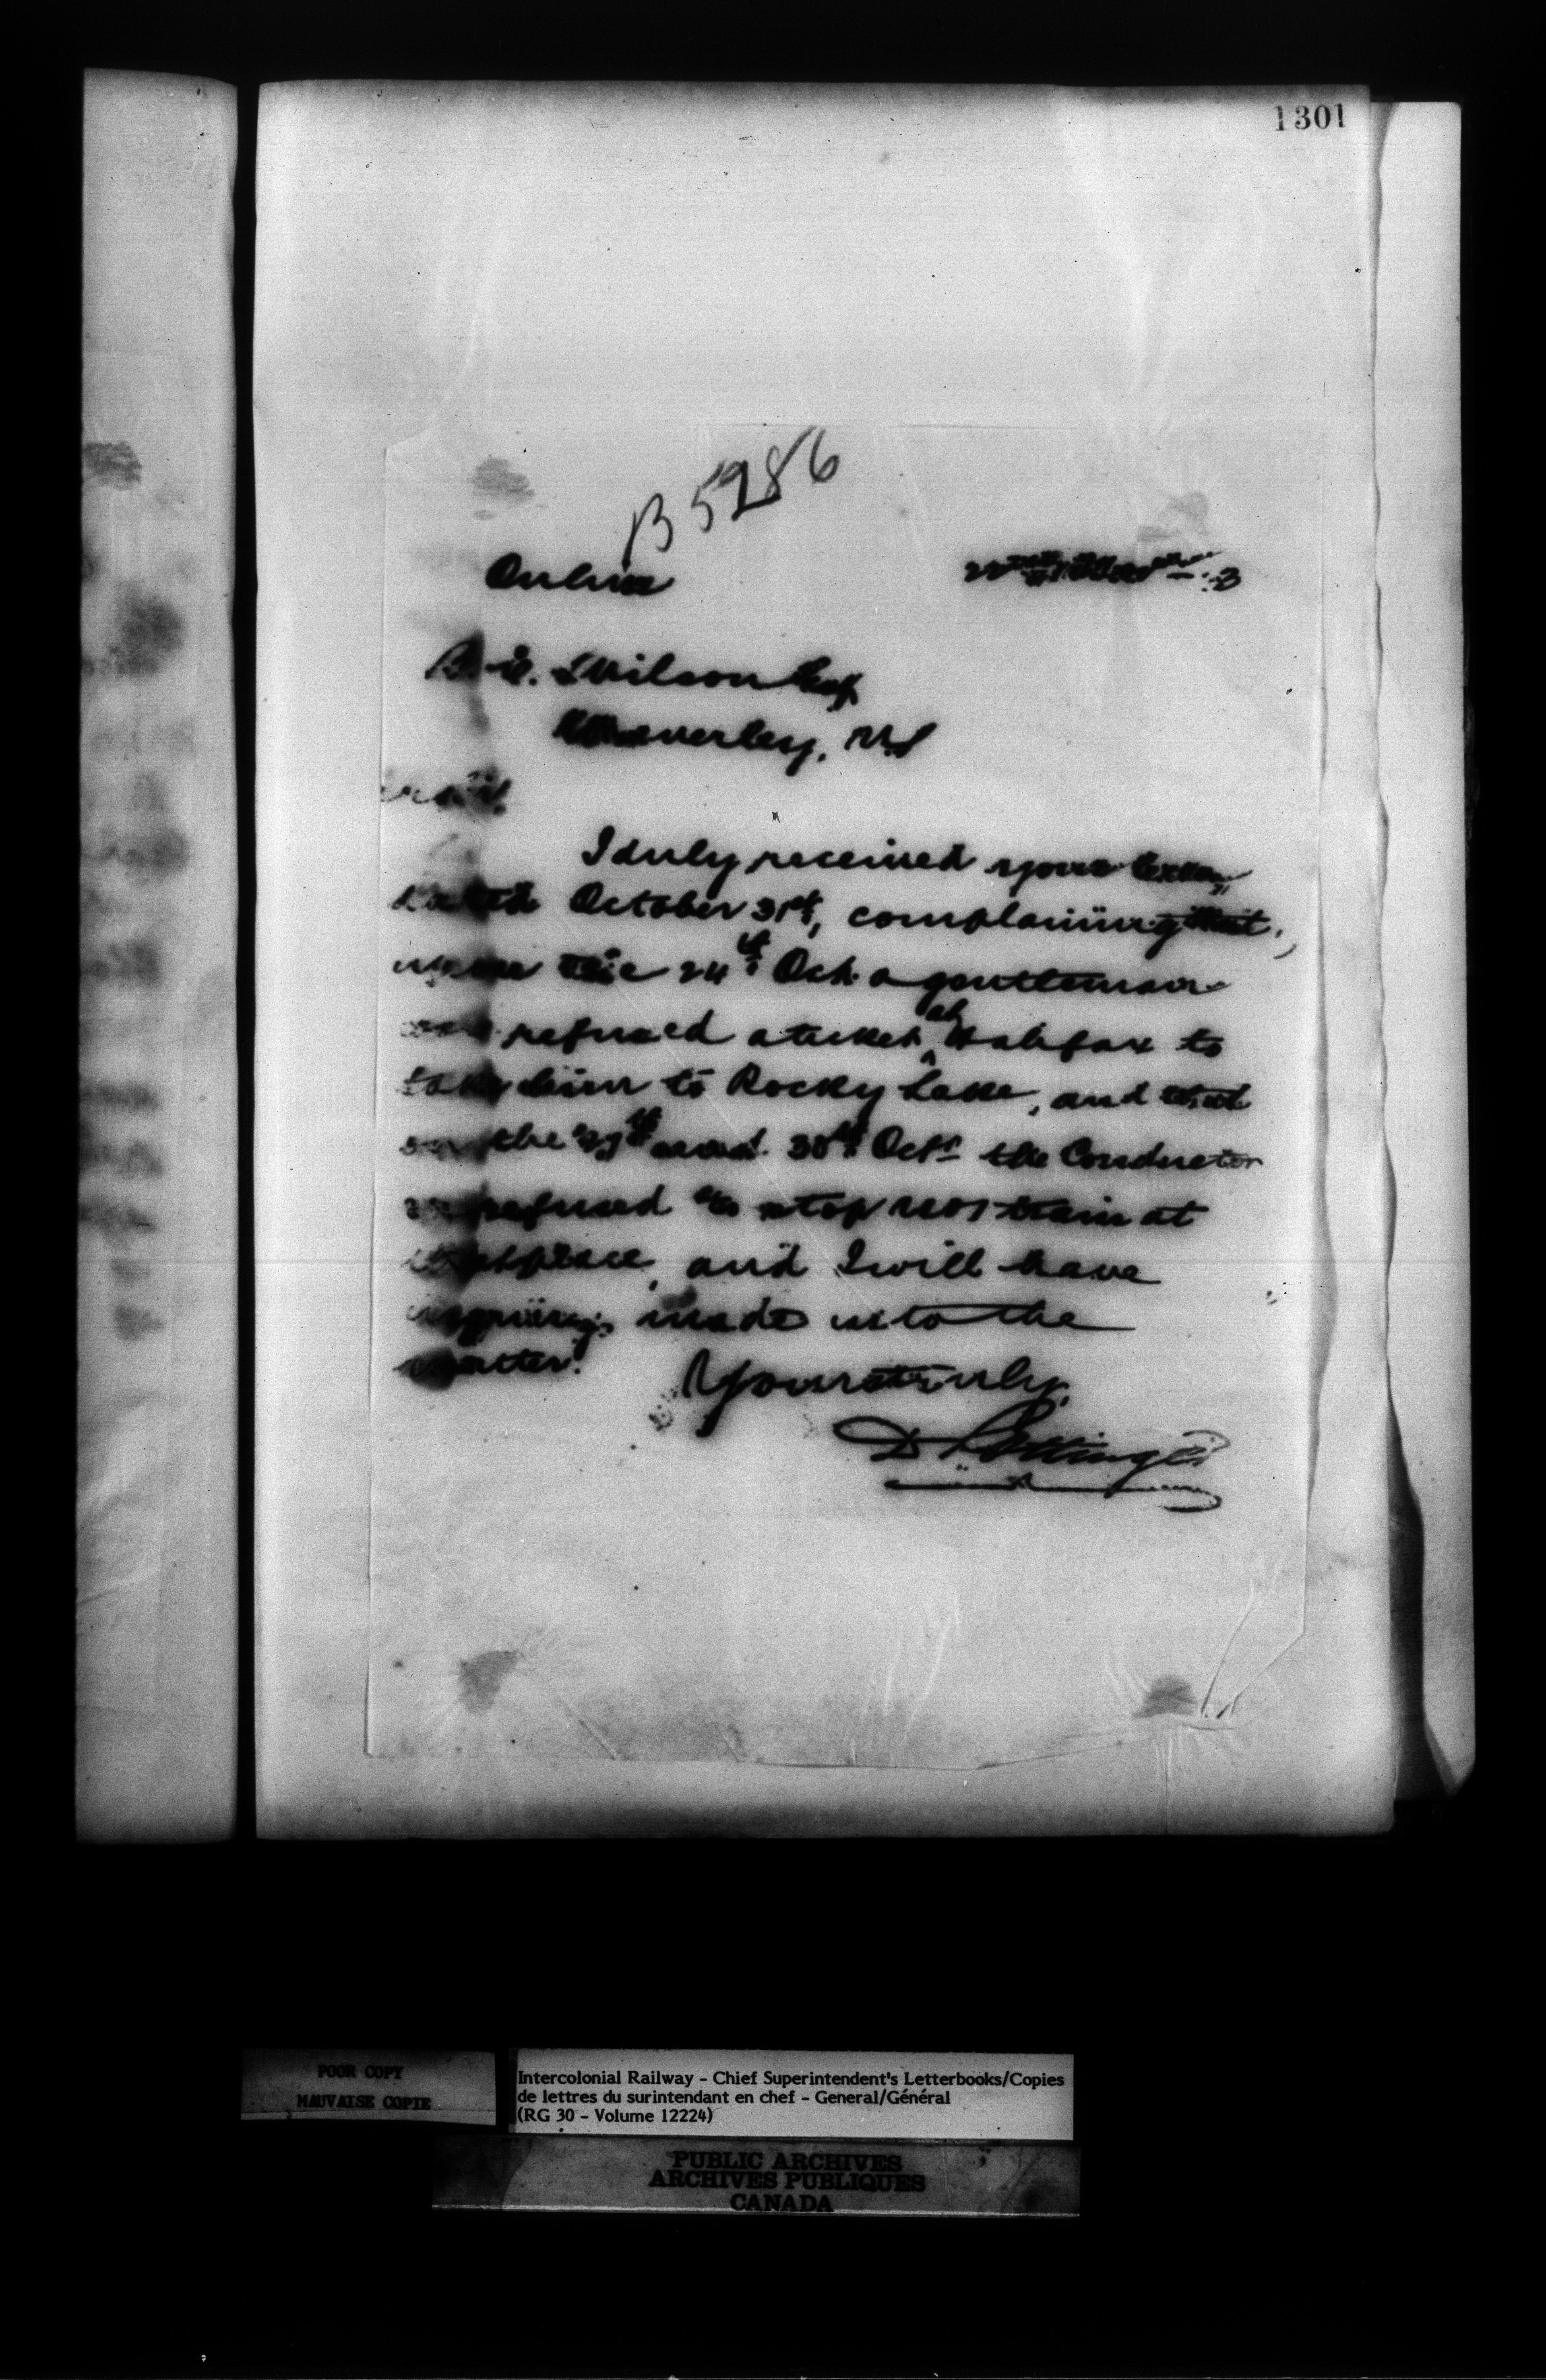 1301
B 5286
B. C. Wilson Esq
Waverley, N.S
I duly received your letter
dated October 31st, complaining that,
upon the 24th Oct. a gentleman
was refused a ticket at Halifax to
take him to Rocky Lake, and that
on the 27th and 30th Octr the Conductor
refused to stop No 1 train at
that place, and I will have
inquiry made into the
matter.
Yours truly,
D Pottinger
POOR COPY
MAUVAISE COPIE
Intercolonial Railway - Chief Superintendent's Letterbooks/Copies
de lettres du surintendant en chef - General/Général
(RG 30 - Volume 12224)
PUBLIC ARCHIVES
ARCHIVES PUBLIQUES
CANADA